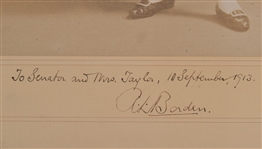 To Senator and Mrs. Taylor, 18 September, 1913.
R L Borden.